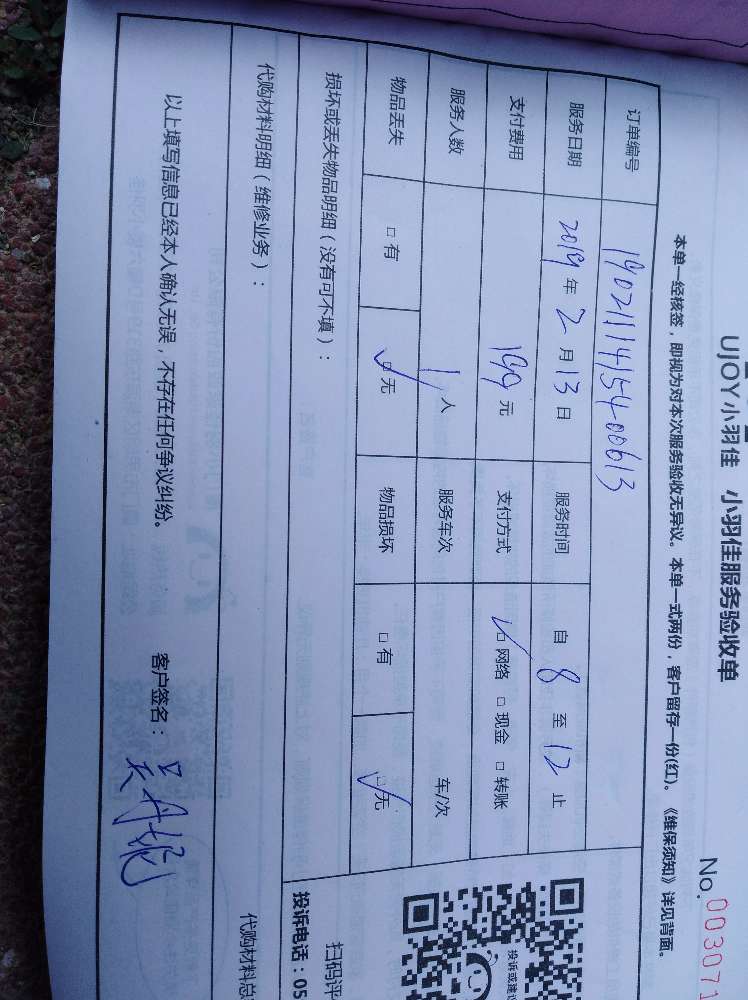 UJOY小羽佳 小羽佳服务验收单
No.003071
本单一经核签，即视为对本次服务验收无异议。本单一式两份，客户留存一份(红)。《维保须知》详见背面。
订单编号 19021114154-00613
服务日期 2019年2月13日 服务时间 自8至12止
支付费用 199元 支付方式 ☑网络 □现金 □转账
服务人数 1人 服务车次 车/次
物品丢失 □有 ☑无 物品损坏 □有 ☑无
损坏或丢失物品明细（没有可不填）：
代购材料明细（维修业务）：
代购材料总
以上填写信息已经本人确认无误，不存在任何争议纠纷。 客户签名：
投诉或建议
扫码评
投诉电话：05